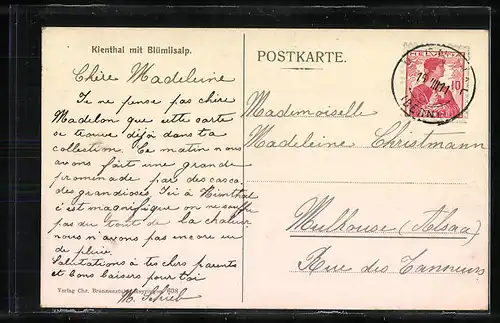 Kienthal mit Blümlisalp.
POSTKARTE.
HELVETIA
10
Chère Madeleine
Je ne pense pas chère
Madelon que cette carte
se trouve déjà dans ta
collection. Ce matin nous
avons fait une grande
promenade par des casca-
des grandioses. Ici à Kienthal
c'est magnifique on ne souffre
pas du tout de la chaleur
nous n'avons pas encore eu
de pluie.
Salutations à tes chers parents
et bons baisers pour toi
Mademoiselle
Madeleine Christmann
Mulhouse (Alsace)
Rue des Tanneurs
Verlag Chr. Brunnen